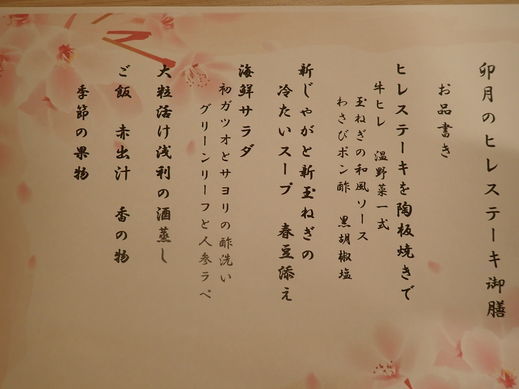 卯月のヒレステーキ御膳
お品書き
ヒレステーキを陶板焼きで
牛ヒレ 温野菜一式
玉ねぎの和風ソース
わさびポン酢 黒胡椒塩
新じゃがと新玉ねぎの
冷たいスープ 春豆添え
海鮮サラダ
初ガツオとサヨリの酢洗い
グリーンリーフと人参ラペ
大粒活け浅利の酒蒸し
ご飯 赤出汁 香の物
季節の果物